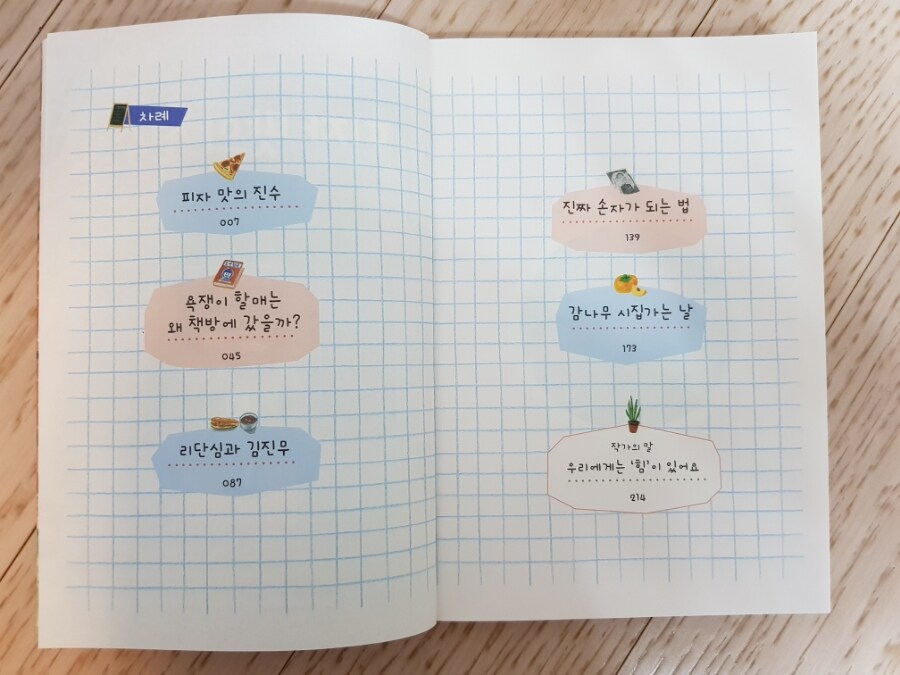 차례
피자 맛의 진수
007
욕쟁이 할매는
왜 책방에 갔을까?
045
리단심과 김진무
087
진짜 손자가 되는 법
139
감나무 시집가는 날
173
작가의 말
우리에게는 '힘'이 있어요
214